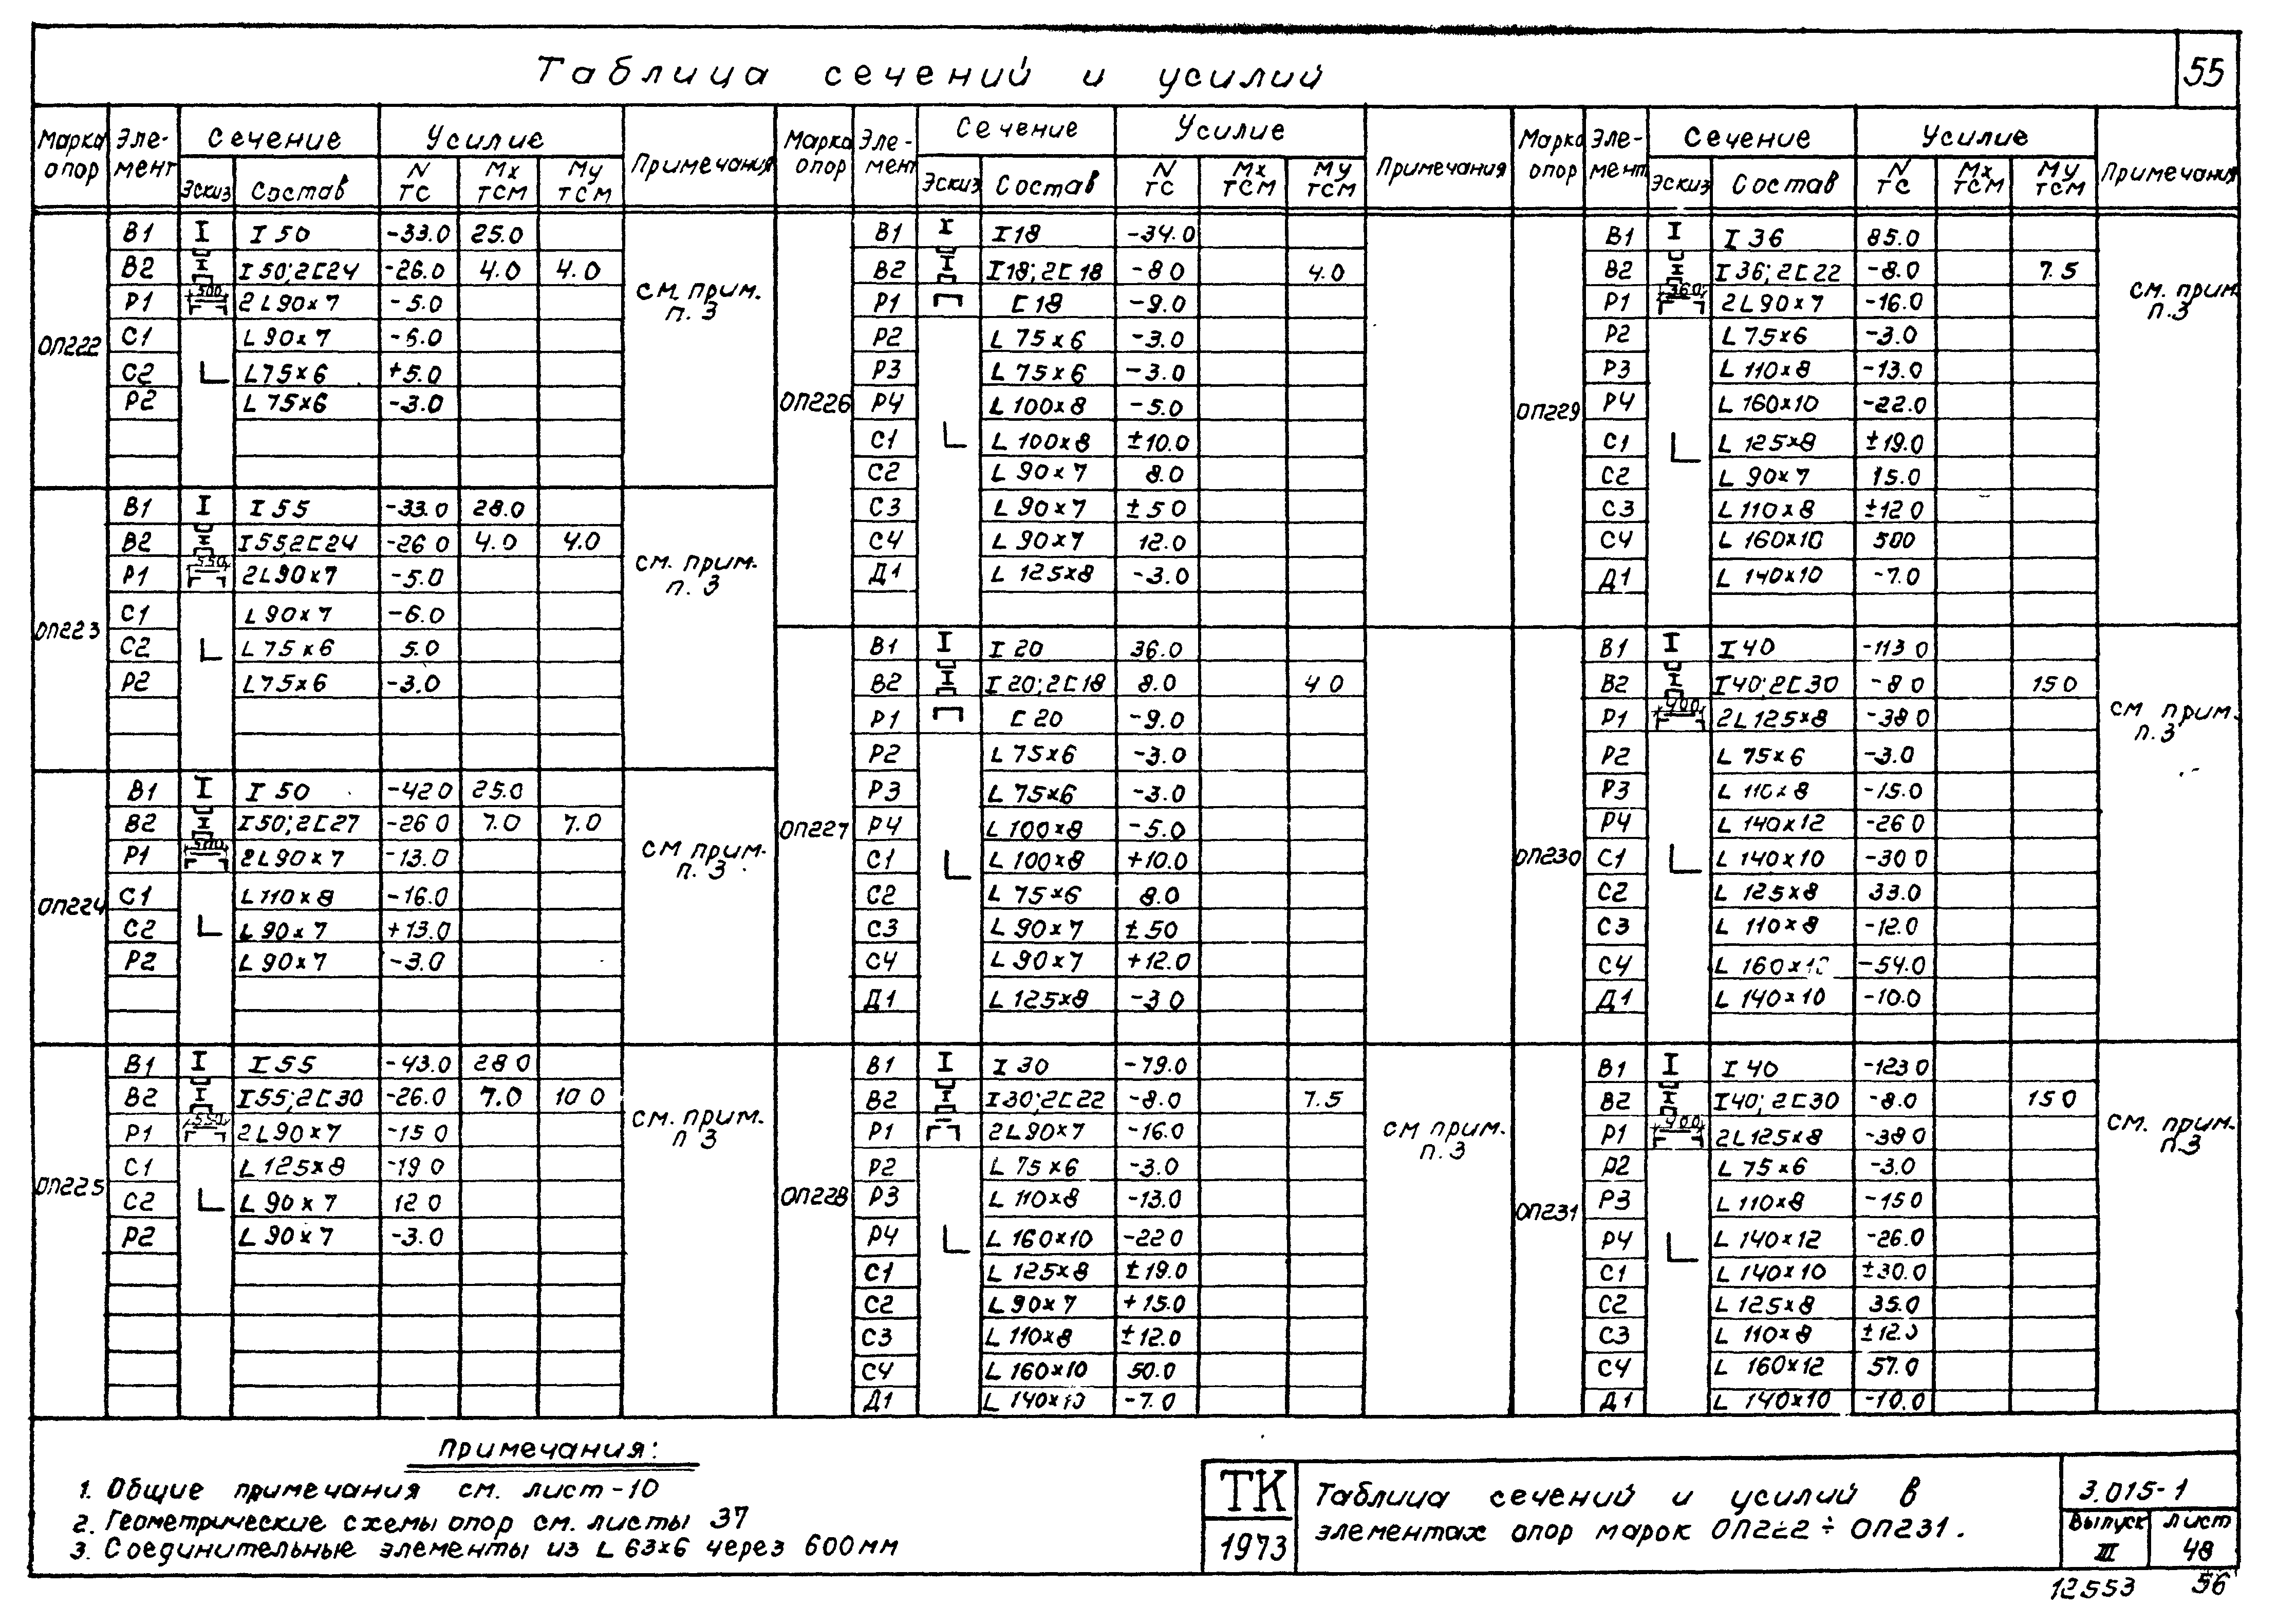 Таблица сечений и усилий
55
Марка опор Элемент Сечение Усилие Примечания
Эскиз Состав N тс Mx тсм My тсм
ОП222
В1 I 50 -33.0 25.0
В2 I 50;2[24 -26.0 4.0 4.0
Р1 500 2L90×7 -5.0
С1 L90×7 -6.0
С2 L75×6 +5.0
Р2 L75×6 -3.0
см. прим. п. 3
ОП223
В1 I 55 -33.0 28.0
В2 I55,2[24 -26 0 4.0 4.0
Р1 550 2L90×7 -5.0
С1 L90×7 -6.0
С2 L75×6 5.0
Р2 L75×6 -3.0
см. прим. п. 3
ОП224
В1 I 50 -42 0 25.0
В2 I50;2[27 -26 0 7.0 7.0
Р1 500 2L90×7 -13.0
С1 L110×8 -16.0
С2 L90×7 +13.0
Р2 L90×7 -3.0
см прим. п. 3
ОП225
В1 I 55 -43.0 28 0
В2 I55;2[30 -26.0 7.0 10 0
Р1 550 2L90×7 -15 0
С1 L125×8 -19 0
С2 L90×7 12 0
Р2 L90×7 -3.0
см. прим. п 3
Марка опор Элемент Сечение Усилие Примечания
Эскиз Состав N тс Mx тсм My тсм
ОП226
В1 I18 -34.0
В2 I18;2[18 -8 0 4.0
Р1 [18 -9.0
Р2 L 75×6 -3.0
Р3 L 75×6 -3.0
Р4 L 100×8 -5.0
С1 L 100×8 ±10.0
С2 L 90×7 8.0
С3 L 90×7 ±5 0
С4 L 90×7 12.0
Д1 L 125×8 -3.0
ОП227
В1 I 20 36.0
В2 I 20;2[18 8.0 4 0
Р1 [20 -9.0
Р2 L 75×6 -3.0
Р3 L 75×6 -3.0
Р4 L 100×8 -5.0
С1 L 100×8 +10.0
С2 L 75×6 8.0
С3 L 90×7 ±50
С4 L 90×7 +12.0
Д1 L 125×8 -3 0
ОП228
В1 I 30 -79.0
В2 I30;2[22 -8.0 7.5
Р1 2L90×7 -16.0
Р2 L 75×6 -3.0
Р3 L 110×8 -13.0
Р4 L 160×10 -22 0
С1 L 125×8 ±19.0
С2 L90×7 +15.0
С3 L 110×8 ±12.0
С4 L 160×10 50.0
Д1 L 140×10 -7.0
см прим. п. 3
Марка опор Элемент Сечение Усилие Примечания
Эскиз Состав N тс Mx тсм My тсм
ОП229
В1 I 36 85.0
В2 I36;2[22 -8.0 7.5
Р1 360 2L90×7 -16.0
Р2 L 75×6 -3.0
Р3 L 110×8 -13.0
Р4 L 160×10 -22.0
С1 L 125×8 ±19.0
С2 L 90×7 15.0
С3 L110×8 ±12 0
С4 L 160×10 500
Д1 L 140×10 -7.0
см. прим. п.3
ОП230
В1 I40 -113 0
В2 I40;2[30 -8 0 15 0
Р1 400 2L125×8 -38 0
Р2 L 75×6 -3.0
Р3 L 110×8 -15.0
Р4 L 140×12 -26 0
С1 L 140×10 -30 0
С2 L 125×8 33.0
С3 L 110×8 -12.0
С4 L 160× -54.0
Д1 L 140×10 -10.0
см прим. п.3
ОП231
В1 I 40 -123 0
В2 I40; 2[30 -8.0 15 0
Р1 400 2L125×8 -38 0
Р2 L 75×6 -3.0
Р3 L110×8 -15 0
Р4 L 140×12 -26.0
С1 L 140×10 ±30.0
С2 L 125×8 35.0
С3 L 110×8 ±12.0
С4 L 160×12 57.0
Д1 L 140×10 -10.0
см. прим. п.3
Примечания:
1. Общие примечания см. лист-10
2. Геометрические схемы опор см. листы 37
3. Соединительные элементы из L 63×6 через 600мм
ТК
1973
Таблица сечений и усилий в
элементах опор марок ОП222 ÷ ОП231.
3.015-1
Выпуск III
Лист 48
12553 56